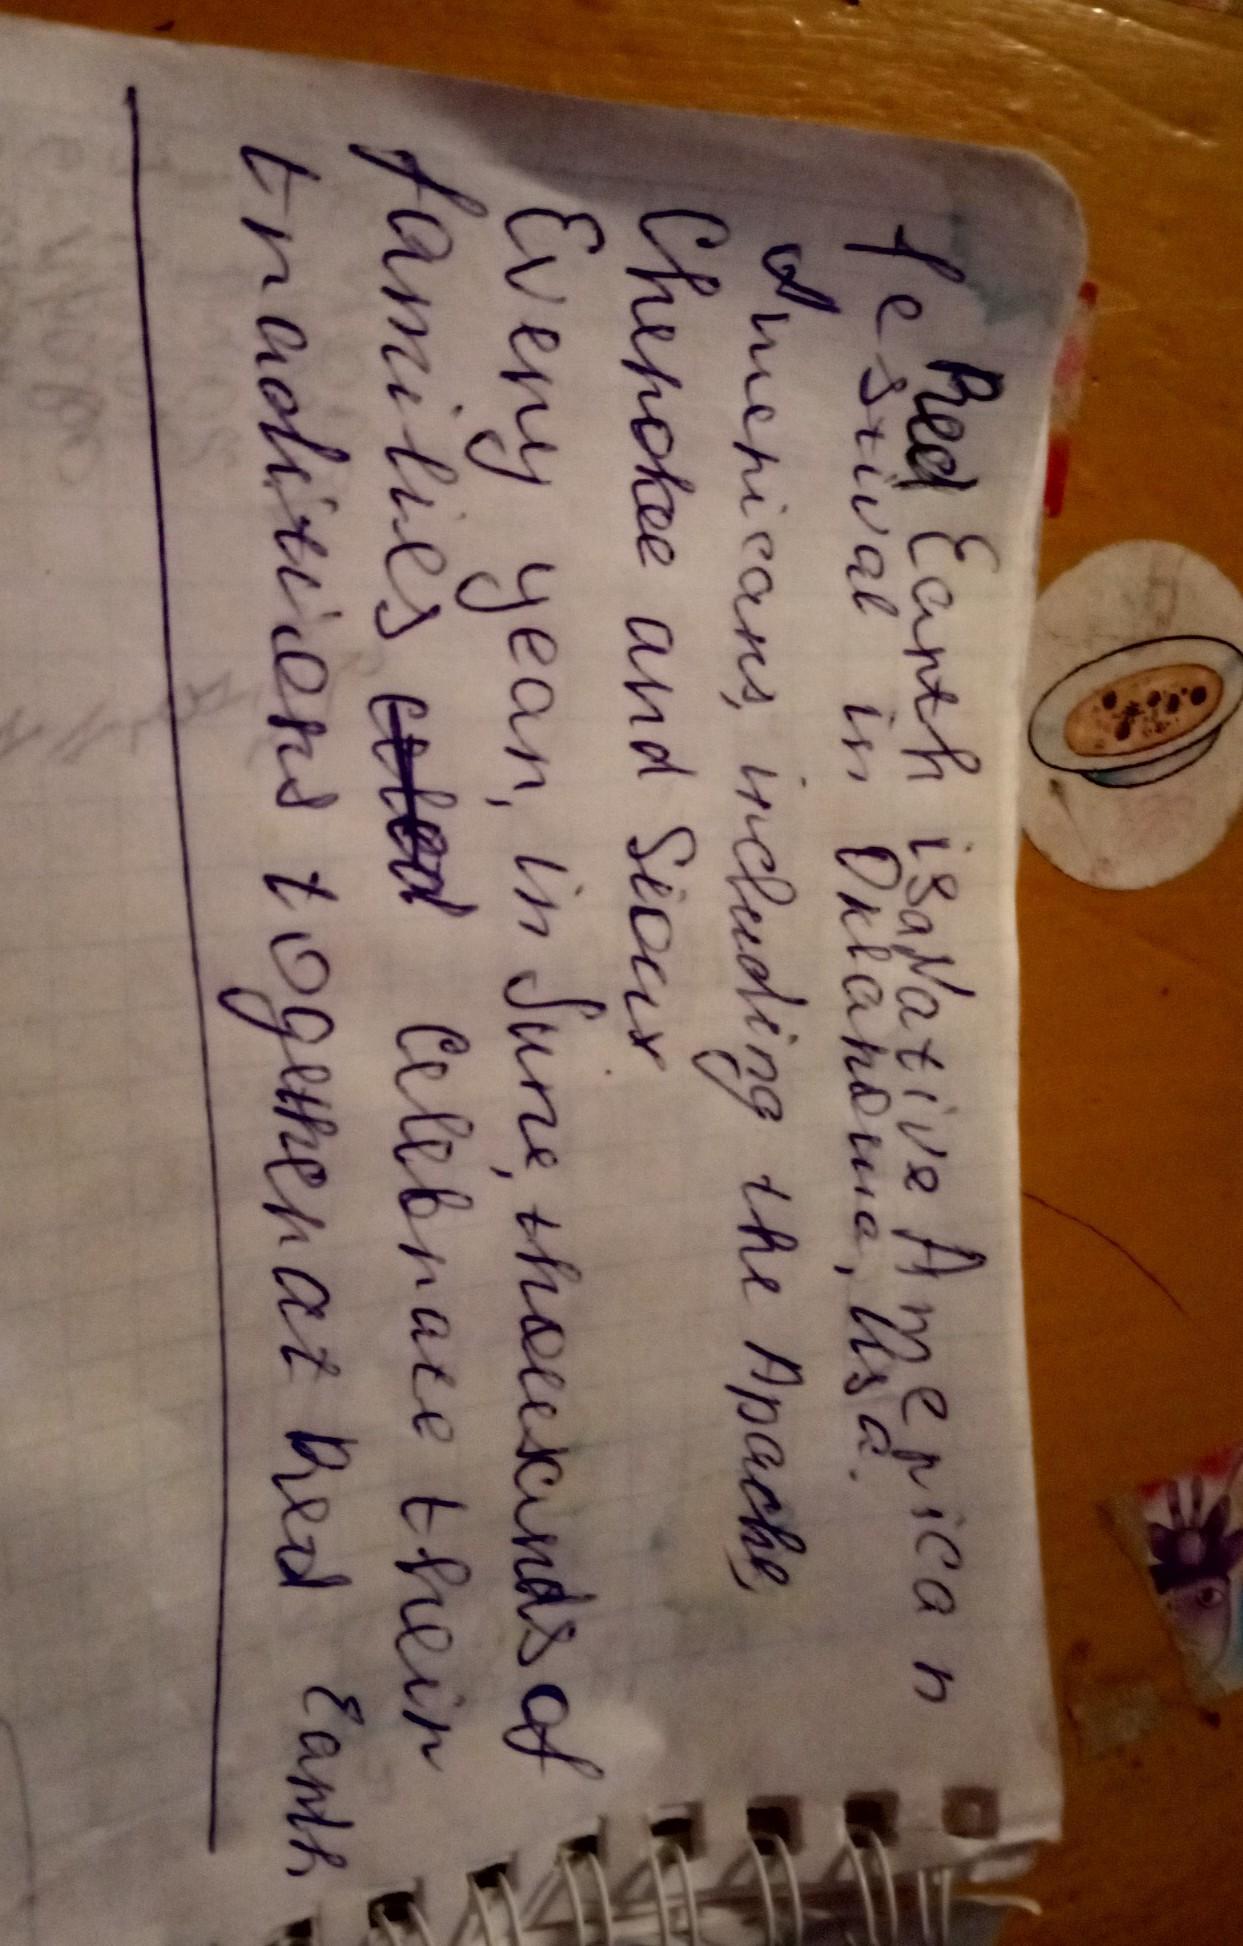 Red Earth is a Native American
festival in Oklahoma, Usa.
Americans, including the Apache,
Cherokee and Sioux
Every year, in June, thousands of
families celebrate their
traditions together at Red Earth